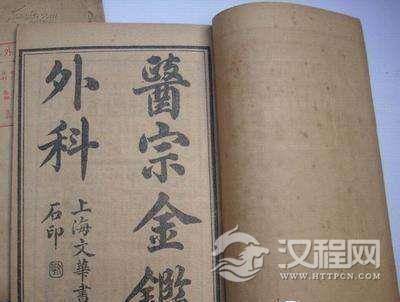 醫宗金鑑
外科
上海文華書
石印
汉程网
WWW.HTTPCN.COM